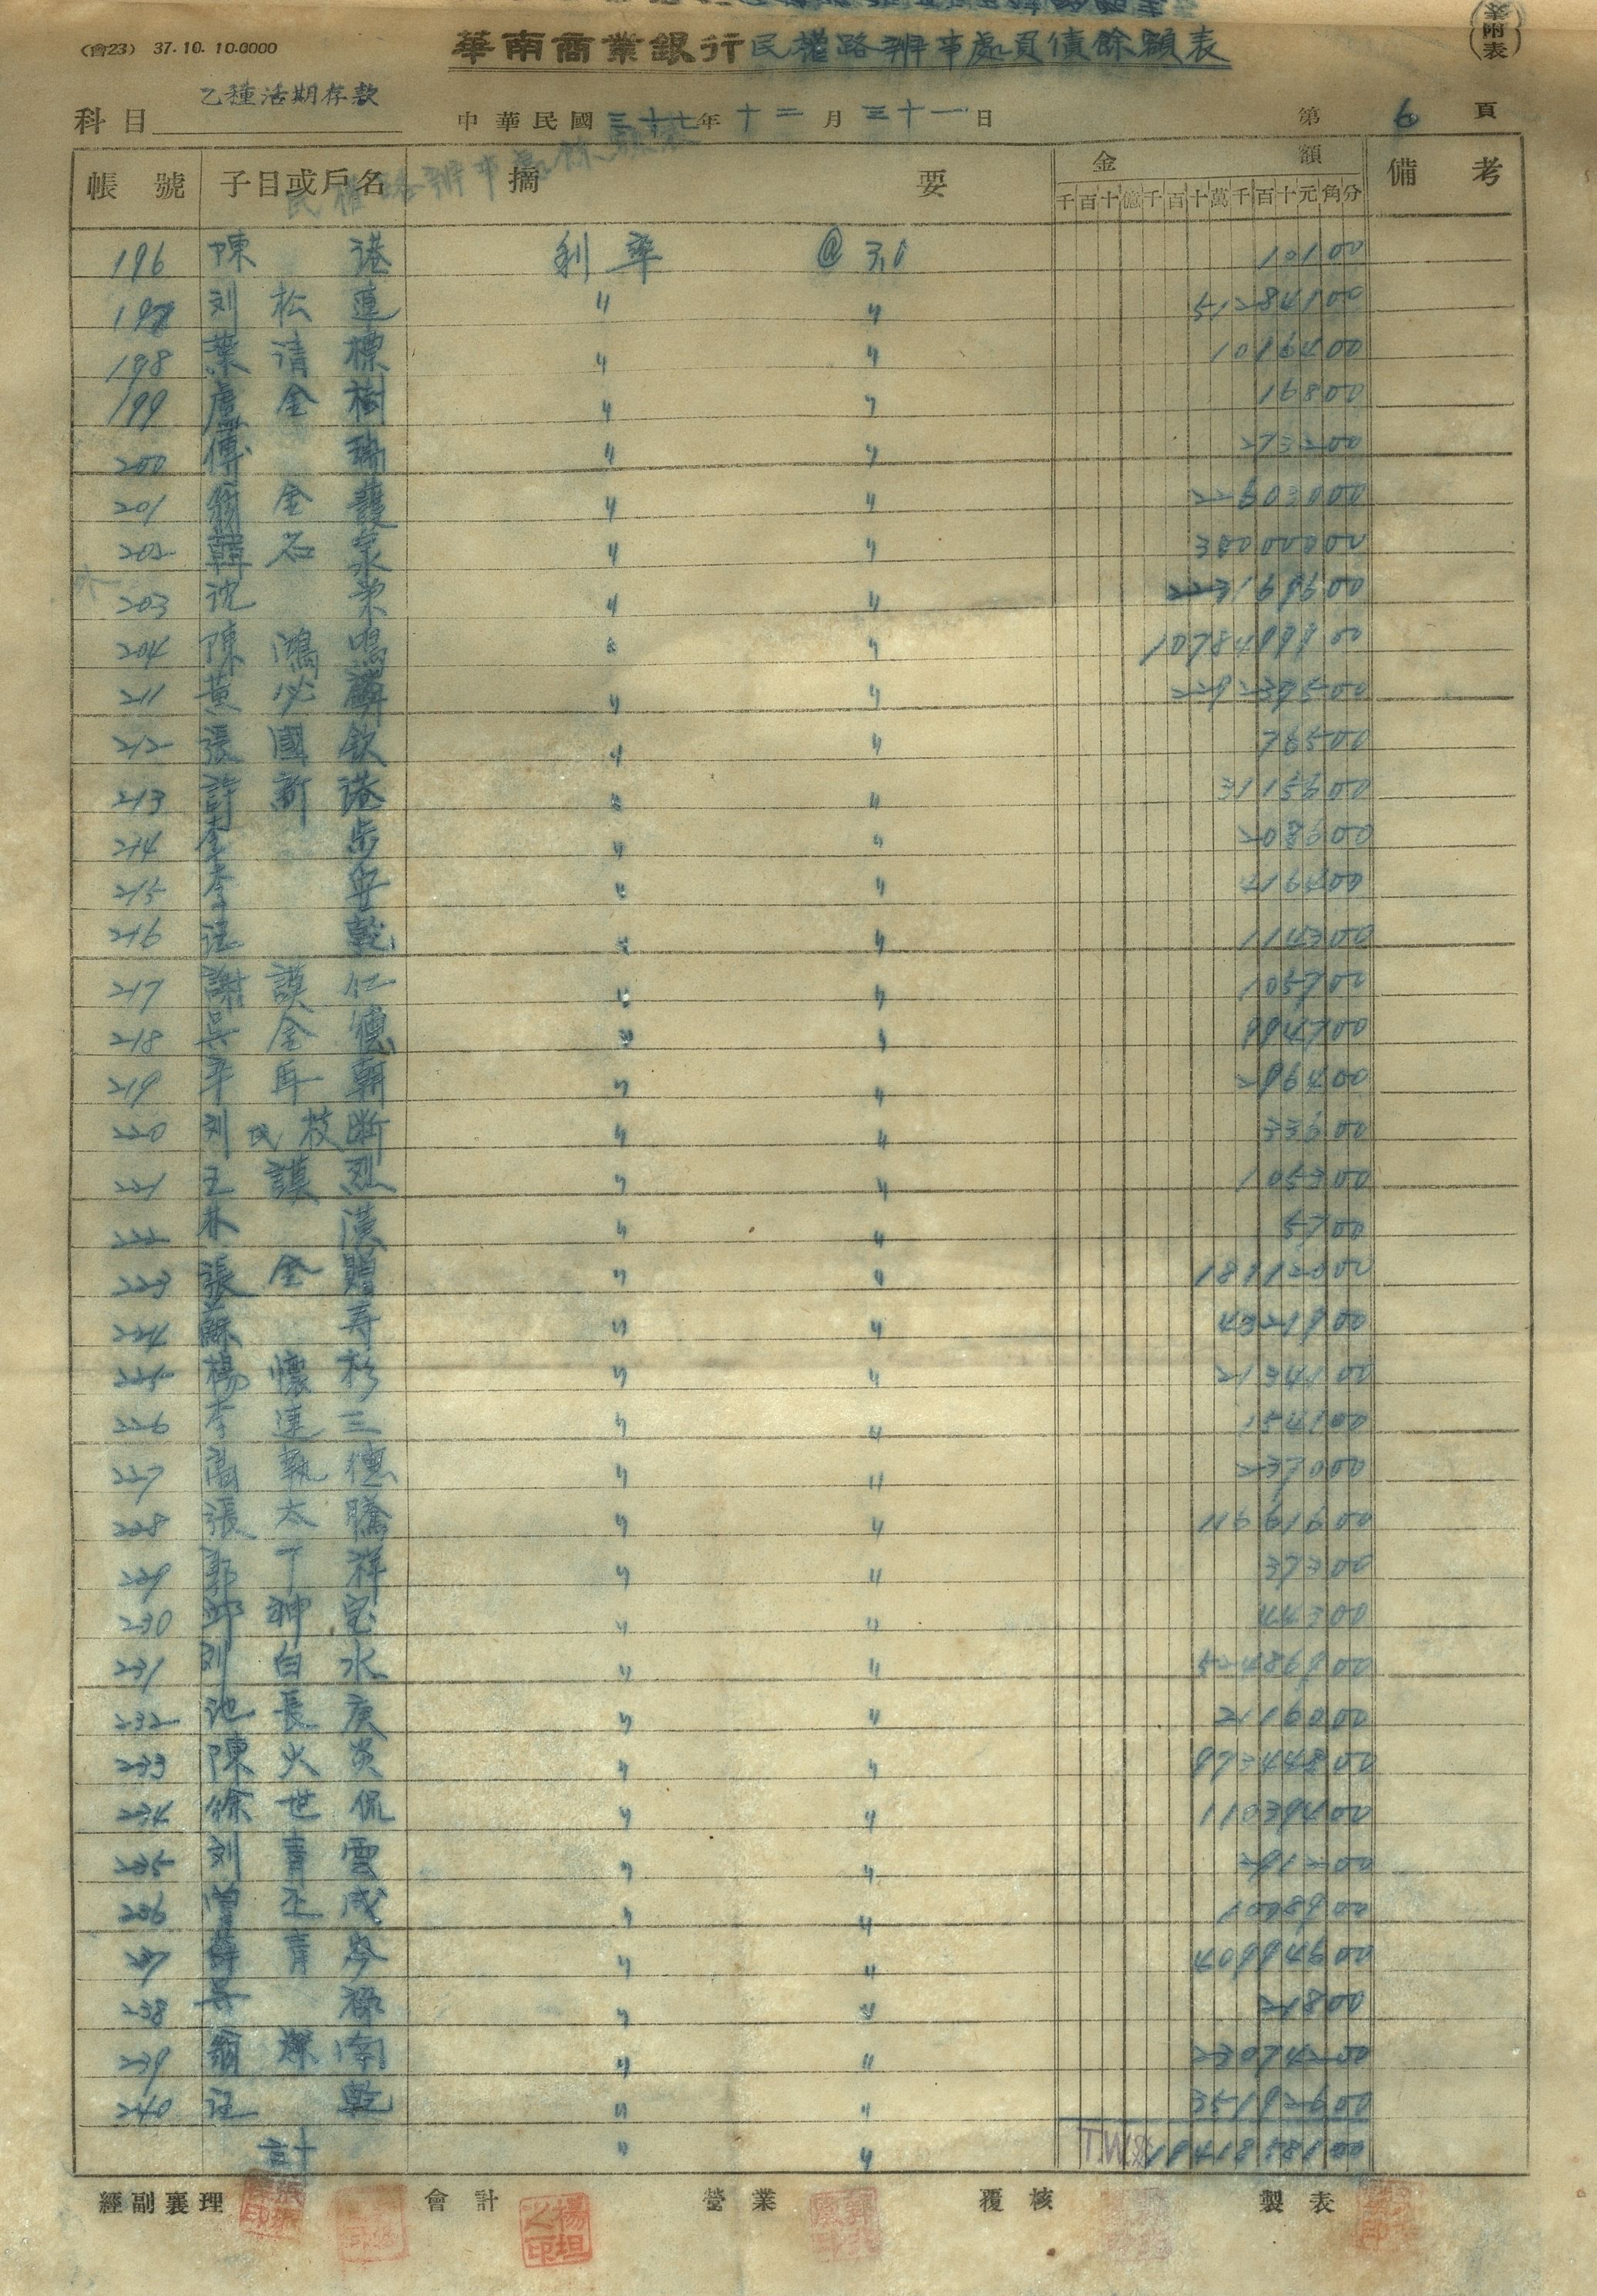 (會23) 37.10.10.6000
華南商業銀行民權路辦事處負債餘額表
業附表
科目 乙種活期存款 中華民國三十七年十二月三十一日 第6頁
帳號 子目或戶名 摘要 金額 備考
千百十億千百十萬千百十元角分
196 陳 港 利率 @ 3.0 10100
197 刘松連 〃 〃 51284100
198 葉清標 〃 〃 1019400
199 盧金樹 〃 〃 16800
200 傅 瑞 〃 〃 273200
201 金護 〃 〃 22603000
202 韓石泉 〃 〃 38000000
203 沈 榮 〃 〃
204 陳鴻鳴 〃 〃 1078499900
211 黃必麟 〃 〃 229239500
212 張國欽 〃 〃 76500
213 許新港 〃 〃 3115600
214 步 〃 〃 208600
215 李 安 〃 〃 416400
216 汪 乾 〃 〃 114300
217 謝謨仁 〃 〃 105900
218 吳金德 〃 〃 994700
219 辛再朝 〃 〃 296400
220 刘民枝 〃 〃 33600
221 王謨烈 〃 〃 105300
222 林 漢 〃 〃 5700
223 張金 〃 〃
224 蘇 寿 〃 〃 4321900
225 楊懷杉 〃 〃 2134100
226 李連三 〃 〃 154100
227 執德 〃 〃 237000
228 張太騰 〃 〃 11661600
229 郭丁祥 〃 〃 37300
230 邱神宝 〃 〃 44300
231 刘白水 〃 〃 52486900
232 池長庚 〃 〃 2116000
233 陳火炎 〃 〃 97344800
234 徐世侃 〃 〃 11039400
235 刘青雲 〃 〃 261200
236 曾丕成 〃 〃
237 薛青岑 〃 〃 40994600
238 吳 祿 〃 〃 21800
239 翁燦南 〃 〃 23074200
240 汪 乾 〃 〃 35162600
計 〃 〃 TW$
經副襄理 會計 營業 覆核 製表
楊坦之印